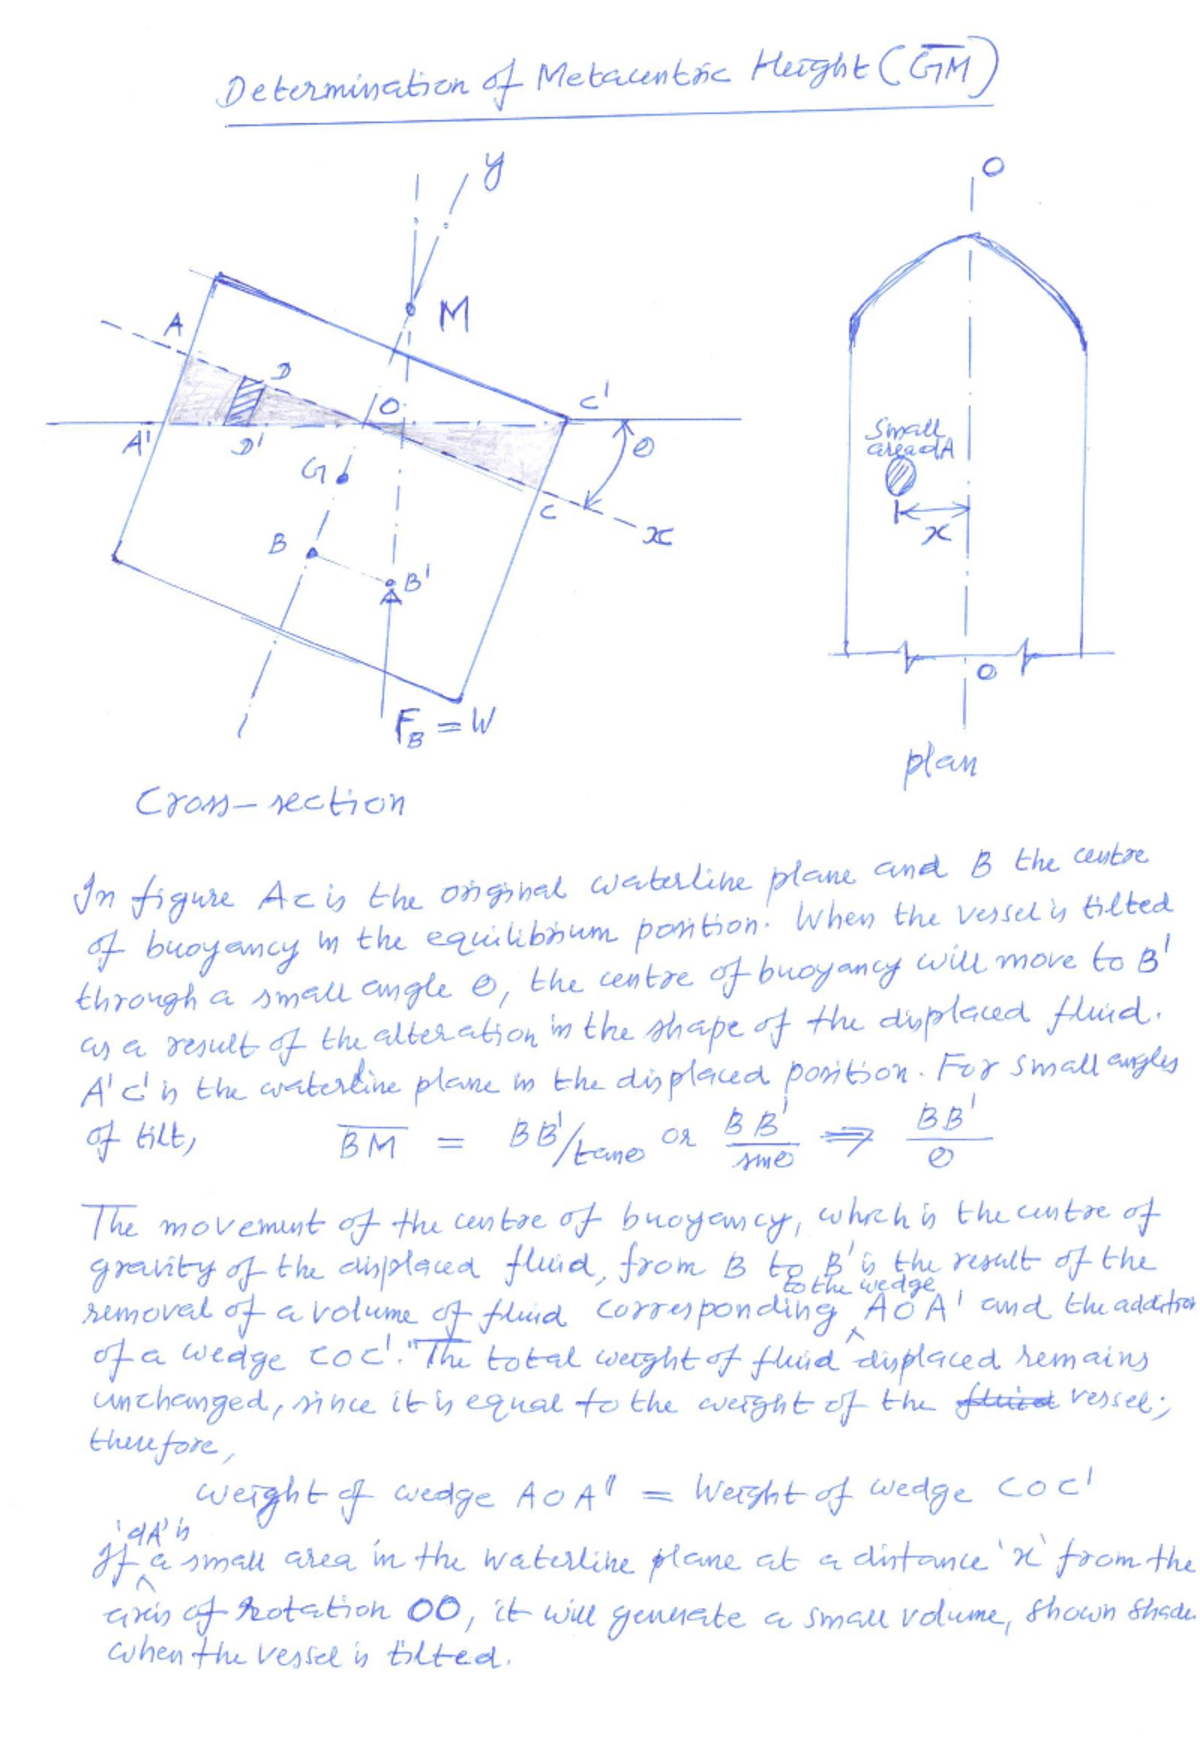 Determination of Metacentric Height (G̅M̅)
y
O
M
A
D
O
C'
A'
D'
θ
G
C
x
B
B'
F_B = W
Small
area dA
x
O
plan
Cross-section
In figure AC is the original waterline plane and B the centre
of buoyancy in the equilibrium position. When the vessel is tilted
through a small angle θ, the centre of buoyancy will move to B'
as a result of the alteration in the shape of the displaced fluid.
A'C' is the waterline plane in the displaced position. For small angles
of tilt, B̅M̅ = BB'/tanθ or BB'/sinθ ⇒ BB'/θ
The movement of the centre of buoyancy, which is the centre of
gravity of the displaced fluid, from B to B' is the result of the
removal of a volume of fluid corresponding to the wedge AOA' and the addition
of a wedge COC'. The total weight of fluid displaced remains
unchanged, since it is equal to the weight of the fluid vessel;
therefore,
weight of wedge AOA' = Weight of wedge COC'
If 'dA' is a small area in the waterline plane at a distance 'x' from the
axis of rotation OO, it will generate a small volume, shown shade
when the vessel is tilted.